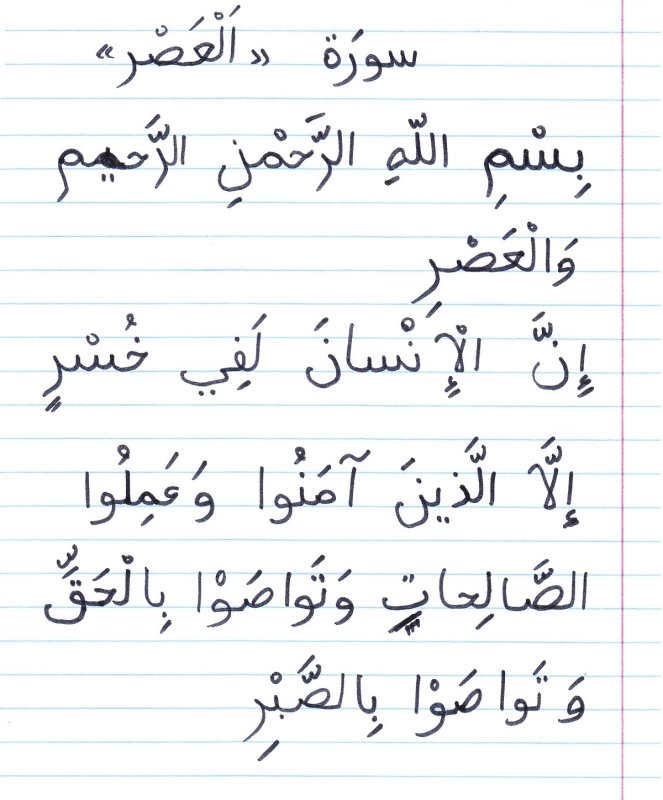 سورَة «اَلْعَصْر»
بِسْمِ اللّهِ الرَّحْمنِ الرَّحيم
وَالْعَصْرِ
إِنَّ الْإِنْسانَ لَفِي خُسْرٍ
إِلَّا الَّذينَ آمَنُوا وَعَمِلُوا
الصَّالِحاتِ وَتَواصَوْا بِالْحَقِّ
وَتَواصَوْا بِالصَّبْرِ